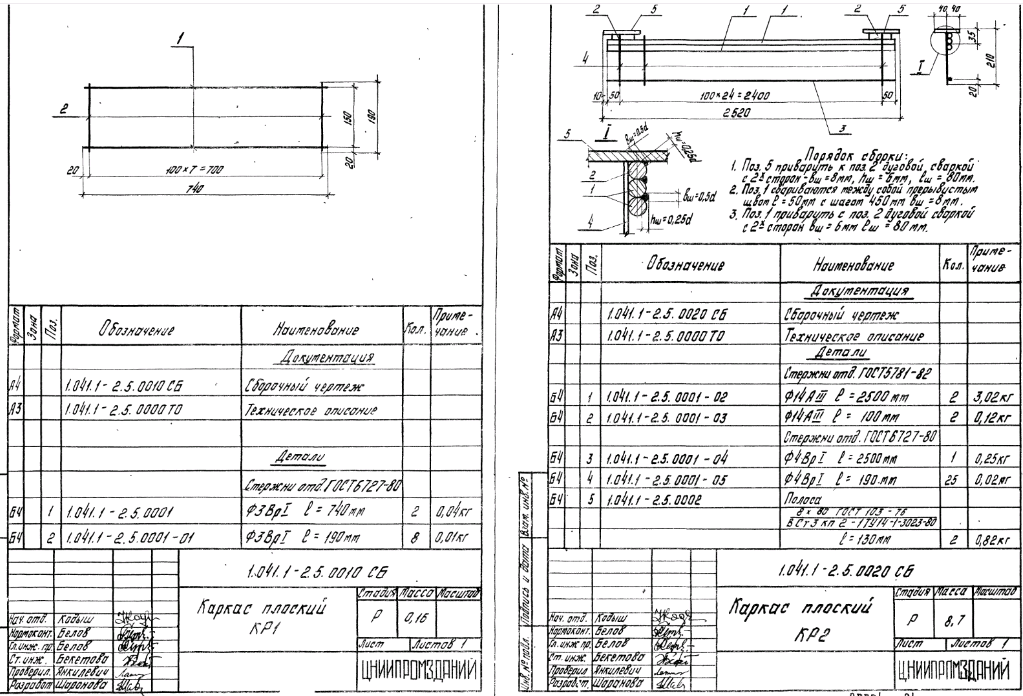 1
2
150
190
20
20
100 х 7 = 700
740
Формат
Зона
Поз.
Обозначение
Наименование
Кол.
Приме-
чание
Документация
А4 1.041.1-2.5.0010 СБ Сборочный чертеж
А3 1.041.1-2.5.0000 ТО Техническое описание
Детали
Стержни отд. ГОСТ 6727-80
Б4 1 1.041.1-2.5.0001 Ф3ВрI ℓ = 740мм 2 0,04кг
Б4 2 1.041.1-2.5.0001-01 Ф3ВрI ℓ = 190мм 8 0,01кг
1.041.1-2.5.0010 СБ
Каркас плоский
КР1
Стадия Масса Масштаб
Р 0,16
Лист Листов 1
ЦНИИПРОМЗДАНИЙ
Нач. отд. Кодыш
Нормоконт. Белов
Гл. инж. пр. Белов
Ст. инж. Бекетова
Проверил Янкилевич
Разработ Шаронова
2 5 1 1 2 5
40 40
35
210
20
I
4
10 50 100×24 = 2400 50
2520
3
I
5
bш=0,5d
hш=0,25d
2
1
4
bш=0,5d
hш=0,25d
Порядок сборки:
1. Поз. 5 приварить к поз. 2 дуговой сваркой
с 2х сторон - bш = 8мм, hш = 6мм, ℓш = 80мм.
2. Поз. 1 свариваются между собой прерывистым
швом ℓ = 50мм с шагом 450мм bш = 8мм.
3. Поз. 1 приварить с поз. 2 дуговой сваркой
с 2х сторон bш = 6мм ℓш = 80мм.
Формат
Зона
Поз.
Обозначение
Наименование
Кол.
Приме-
чание
Документация
А4 1.041.1-2.5.0020 СБ Сборочный чертеж
А3 1.041.1-2.5.0000 ТО Техническое описание
Детали
Стержни отд. ГОСТ 5781-82
Б4 1 1.041.1-2.5.0001-02 Ф14АIII ℓ = 2500мм 2 3,02кг
Б4 2 1.041.1-2.5.0001-03 Ф14АIII ℓ = 100мм 2 0,12кг
Стержни отд. ГОСТ 6727-80
Б4 3 1.041.1-2.5.0001-04 Ф4ВрI ℓ = 2500мм 1 0,25кг
Б4 4 1.041.1-2.5.0001-05 Ф4ВрI ℓ = 190мм 25 0,02кг
Б4 5 1.041.1-2.5.0002 Полоса
8 х 80 ГОСТ 103-76
ВСт3 кп 2-1 ТУ14-1-3023-80
ℓ = 130мм 2 0,82кг
1.041.1-2.5.0020 СБ
Каркас плоский
КР2
Стадия Масса Масштаб
Р 8,7
Лист Листов 1
ЦНИИПРОМЗДАНИЙ
Нач. отд. Кодыш
Нормоконт. Белов
Гл. инж. пр. Белов
Ст. инж. Бекетова
Проверил Янкилевич
Разработ. Шаронова
Инв. № подл.
Подпись и дата
Взам. инв. №